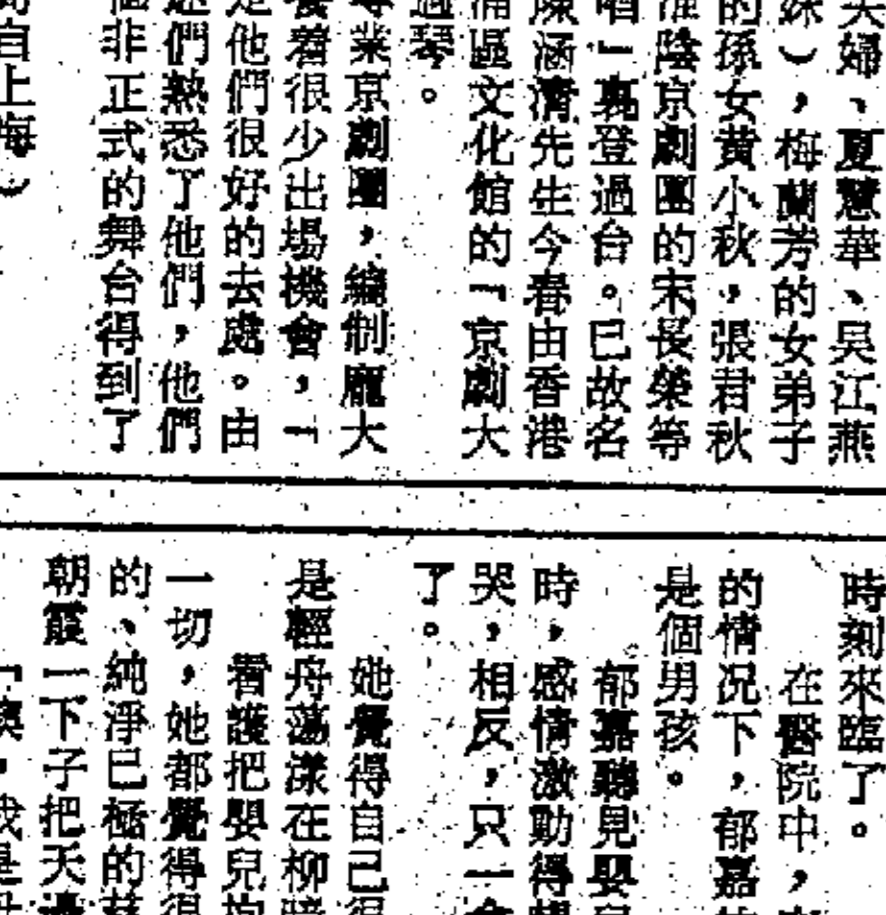 夫婦、夏慧華、吳江燕
妹），梅蘭芳的女弟子
的孫女黃小秋，張君秋
淮陰京劇團的宋長榮等
唱」裏登過台。已故名
陳涵清先生今春由香港
浦區文化館的「京劇大
過琴。
專業京劇團，編制龐大
養着很少出場機會，「
是他們很好的去處。由
迷們熱悉了他們，他們
個非正式的舞台得到了
自上海）
時刻來臨了。
在醫院中，
的情况下，郁嘉
是個男孩。
郁嘉聽見嬰兒
時，感情激動得想
哭，相反，只一會
了。
她覺得自己很
是輕舟蕩漾在柳暗
看護把嬰兒抱
一切，她都覺得很
的、純淨已極的慈
朝霞一下子把天邊
「噢，我是母